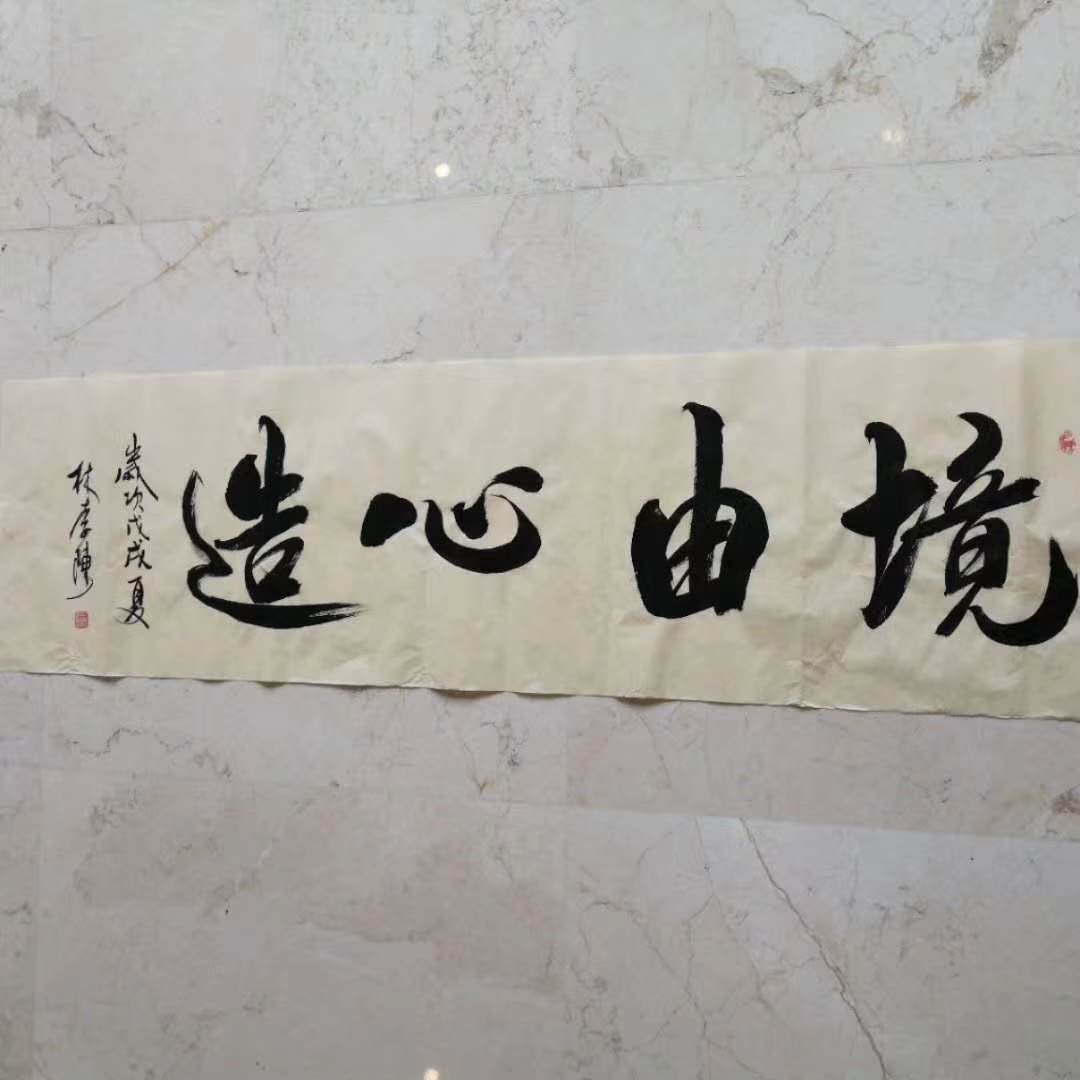 境由心造
歲次戊戌夏
林李陣